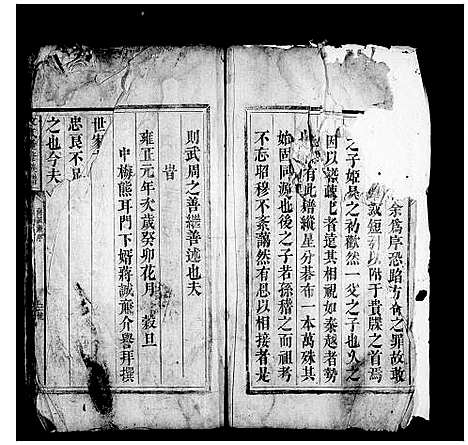 余爲序恐蹈方命之罪故敢
短引以附于貴牒之首焉
之子姬吳之初歡然一父之子也久之
因以搓疎也者遠其相視如秦越者勢
有此譜縱星分碁布一本萬殊其
始固同源也後之子若孫稽之而祖考
不忘昭穆不紊藹然有恩以相接者是
則武周之善繼善述也夫
旹
雍正元年次歲癸卯花月 穀旦
中梅熊耳門下婿蔣誠齋介譽拜撰
世
忠良不
之也今夫